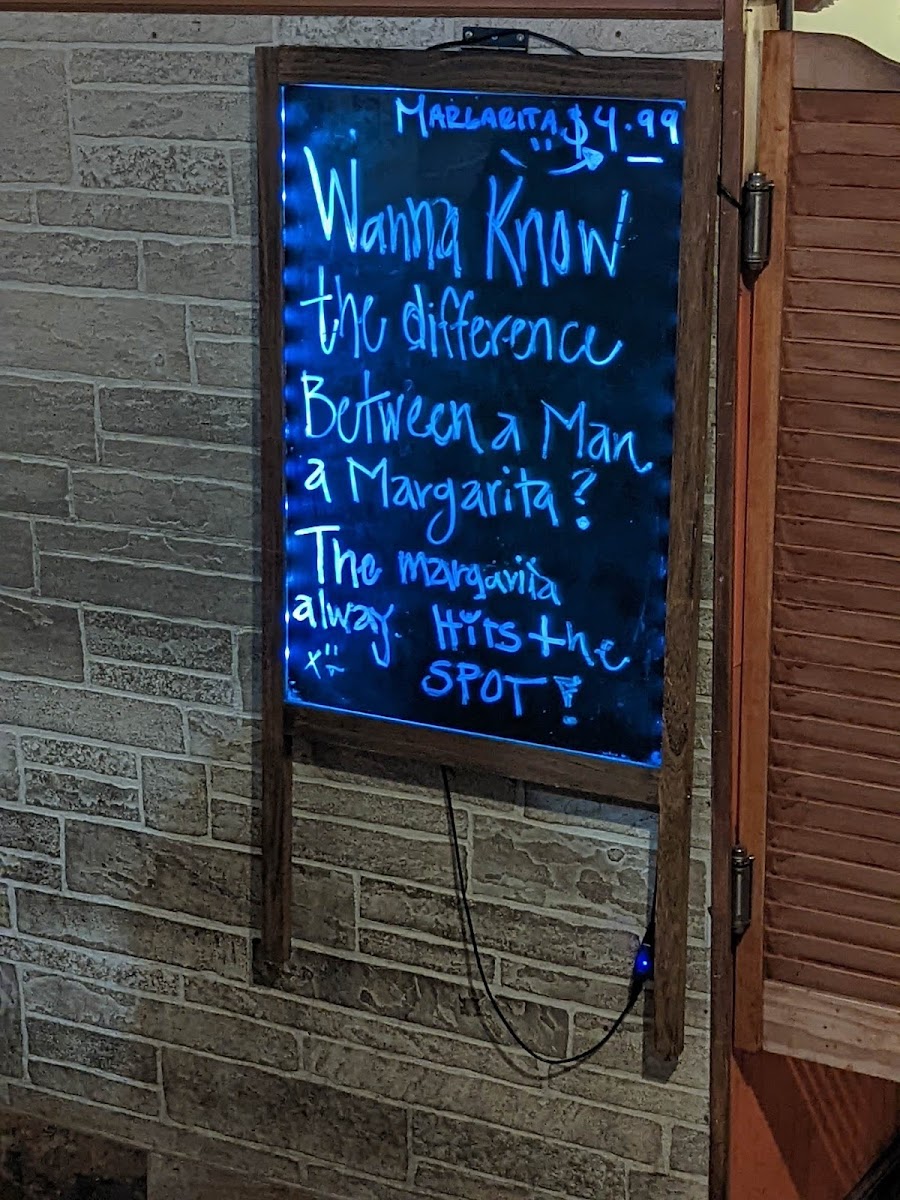 MARGARITA $4.99
Wanna Know
the difference
Between a Man
a Margarita?
The margarita
alway. Hits the
SPOT!